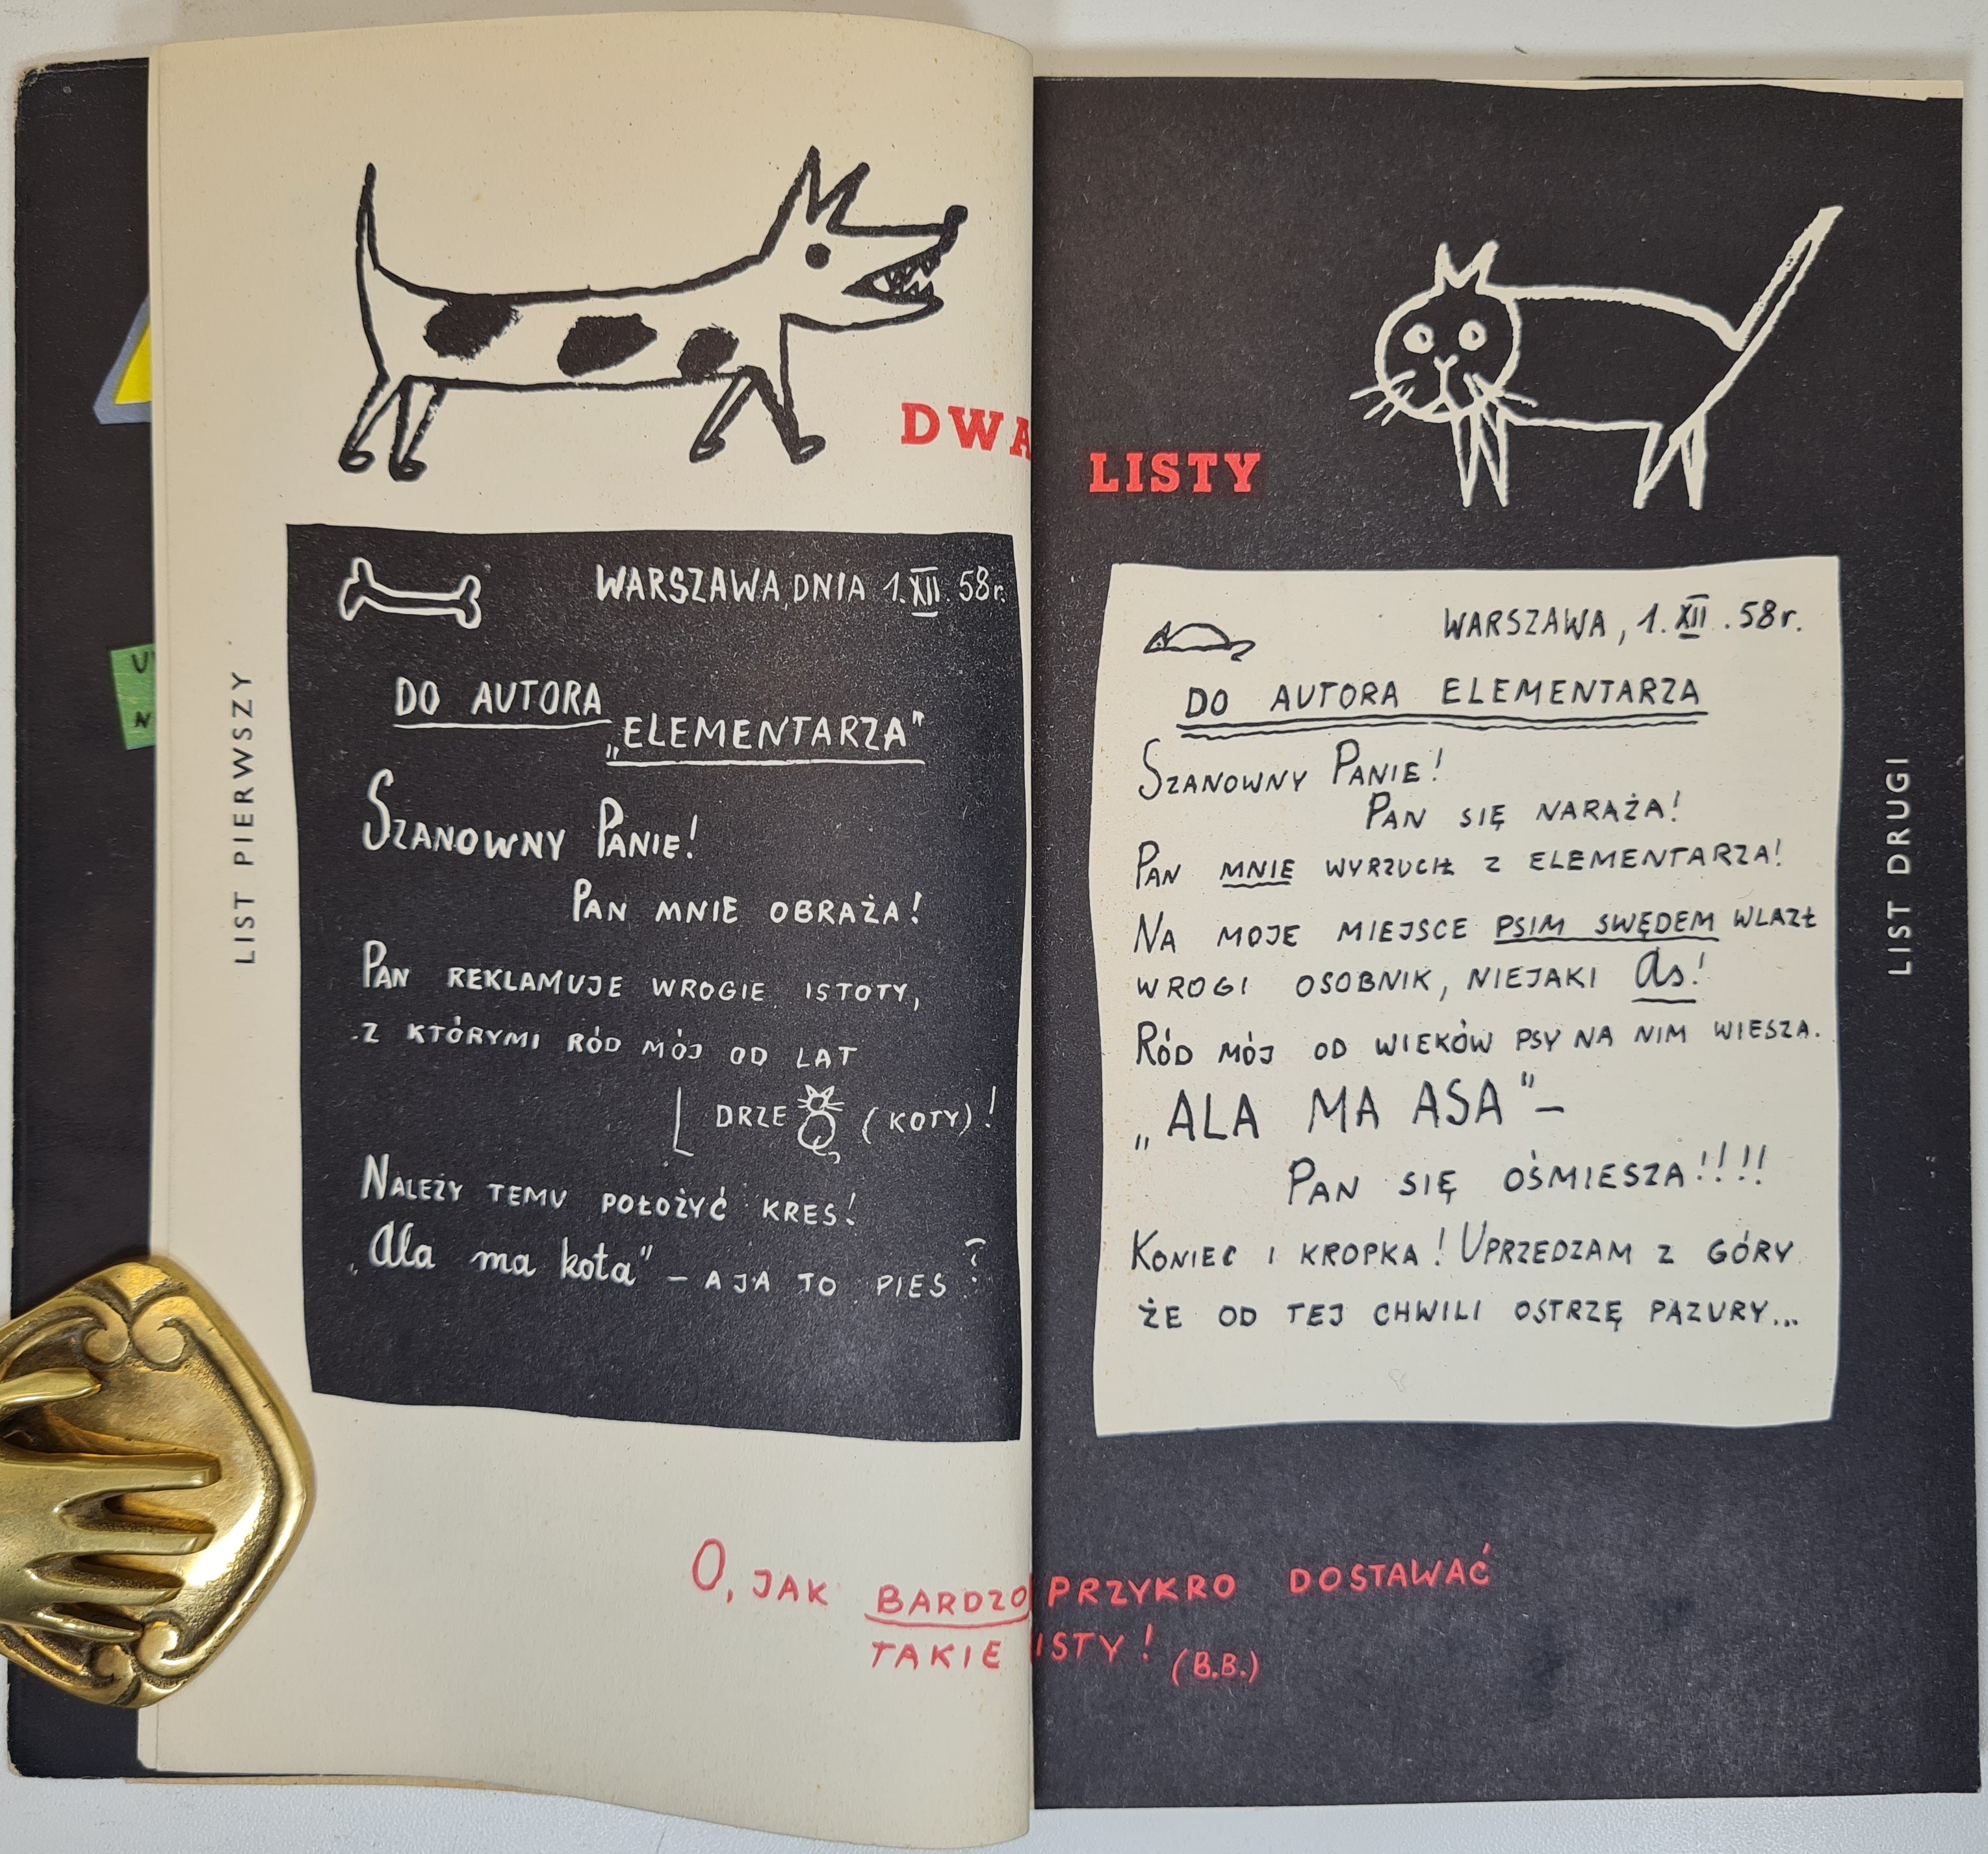 DWA LISTY
LIST PIERWSZY
WARSZAWA, DNIA 1.XII.58r.
DO AUTORA
„ELEMENTARZA"
SZANOWNY PANIE!
PAN MNIE OBRAŻA!
PAN REKLAMUJE WROGIE ISTOTY,
Z KTÓRYMI RÓD MÓJ OD LAT
DRZE (KOTY)!
NALEŻY TEMU POŁOŻYĆ KRES!
„Ala ma kota" – A JA TO PIES?
WARSZAWA, 1.XII.58r.
DO AUTORA ELEMENTARZA
SZANOWNY PANIE!
PAN SIĘ NARAŻA!
PAN MNIE WYRZUCIŁ Z ELEMENTARZA!
NA MOJE MIEJSCE PSIM SWĘDEM WLAZŁ
WROGI OSOBNIK, NIEJAKI As!
RÓD MÓJ OD WIEKÓW PSY NA NIM WIESZA.
„ALA MA ASA" –
PAN SIĘ OŚMIESZA!!!!
KONIEC I KROPKA! UPRZEDZAM Z GÓRY
ŻE OD TEJ CHWILI OSTRZĘ PAZURY...
LIST DRUGI
O, JAK BARDZO PRZYKRO DOSTAWAĆ
TAKIE ISTY! (B.B.)